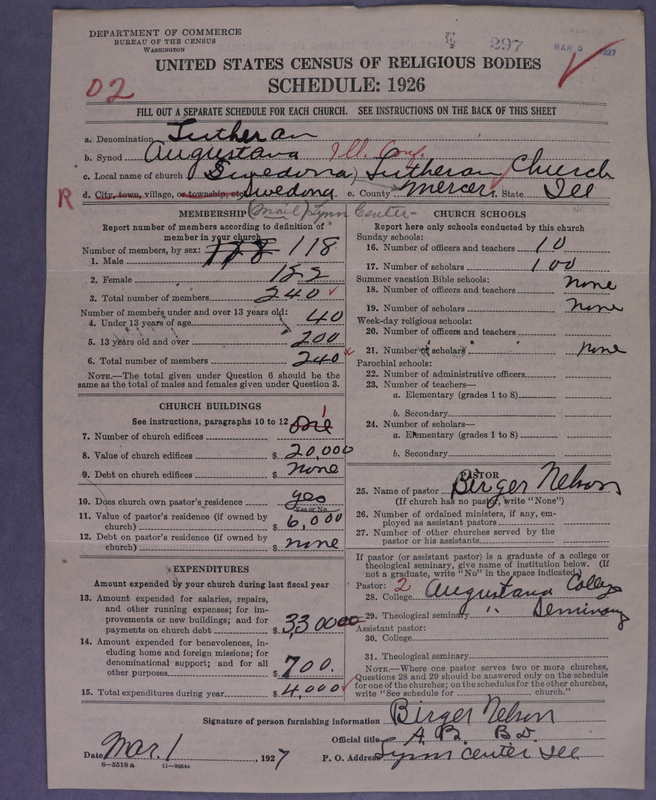 DEPARTMENT OF COMMERCE
BUREAU OF THE CENSUS
WASHINGTON
297
MAR 5 1927
UNITED STATES CENSUS OF RELIGIOUS BODIES
SCHEDULE: 1926
02
FILL OUT A SEPARATE SCHEDULE FOR EACH CHURCH. SEE INSTRUCTIONS ON THE BACK OF THIS SHEET
a. Denomination Lutheran
b. Synod Augustana Ill. Conf.
c. Local name of church Swedona Lutheran Church
R d. City, town, village, or township, etc. Swedona e. County Mercer f. State Ill
(Mail) Lynn Center
MEMBERSHIP
Report number of members according to definition of
member in your church
Number of members, by sex:
1. Male 118 118
2. Female 122
3. Total number of members 240
Number of members under and over 13 years old:
4. Under 13 years of age 40
5. 13 years old and over 200
6. Total number of members 240
NOTE.—The total given under Question 6 should be the
same as the total of males and females given under Question 3.
CHURCH BUILDINGS
See instructions, paragraphs 10 to 12
7. Number of church edifices One 1
8. Value of church edifices $ 20,000
9. Debt on church edifices $ none
10. Does church own pastor's residence yes
Yes or No
11. Value of pastor's residence (if owned by
church) $ 6,000
12. Debt on pastor's residence (if owned by
church) $ none
EXPENDITURES
Amount expended by your church during last fiscal year
13. Amount expended for salaries, repairs,
and other running expenses; for im-
provements or new buildings; and for
payments on church debt $ 3,300 00
14. Amount expended for benevolences, in-
cluding home and foreign missions; for
denominational support; and for all
other purposes $ 700.
15. Total expenditures during year $ 4,000
CHURCH SCHOOLS
Report here only schools conducted by this church
Sunday schools:
16. Number of officers and teachers 10
17. Number of scholars 100
Summer vacation Bible schools:
18. Number of officers and teachers none
19. Number of scholars none
Week-day religious schools:
20. Number of officers and teachers
21. Number of scholars none
Parochial schools:
22. Number of administrative officers
23. Number of teachers—
a. Elementary (grades 1 to 8)
b. Secondary
24. Number of scholars—
a. Elementary (grades 1 to 8)
b. Secondary
PASTOR
25. Name of pastor Birger Nelson
(If church has no pastor, write "None")
26. Number of ordained ministers, if any, em-
ployed as assistant pastors
27. Number of other churches served by the
pastor or his assistants
If pastor (or assistant pastor) is a graduate of a college or
theological seminary, give name of institution below. (If
not a graduate, write "No" in the space indicated.)
Pastor: 2
28. College Augustana College
29. Theological seminary " Seminary
Assistant pastor:
30. College
31. Theological seminary
NOTE.—Where one pastor serves two or more churches,
Questions 28 and 29 should be answered only on the schedule
for one of the churches; on the schedules for the other churches,
write "See schedule for church."
Signature of person furnishing information Birger Nelson
Official title A. B. B D.
Date Mar. 1, 1927 P. O. Address Lynn Center Ill
8—5518 a